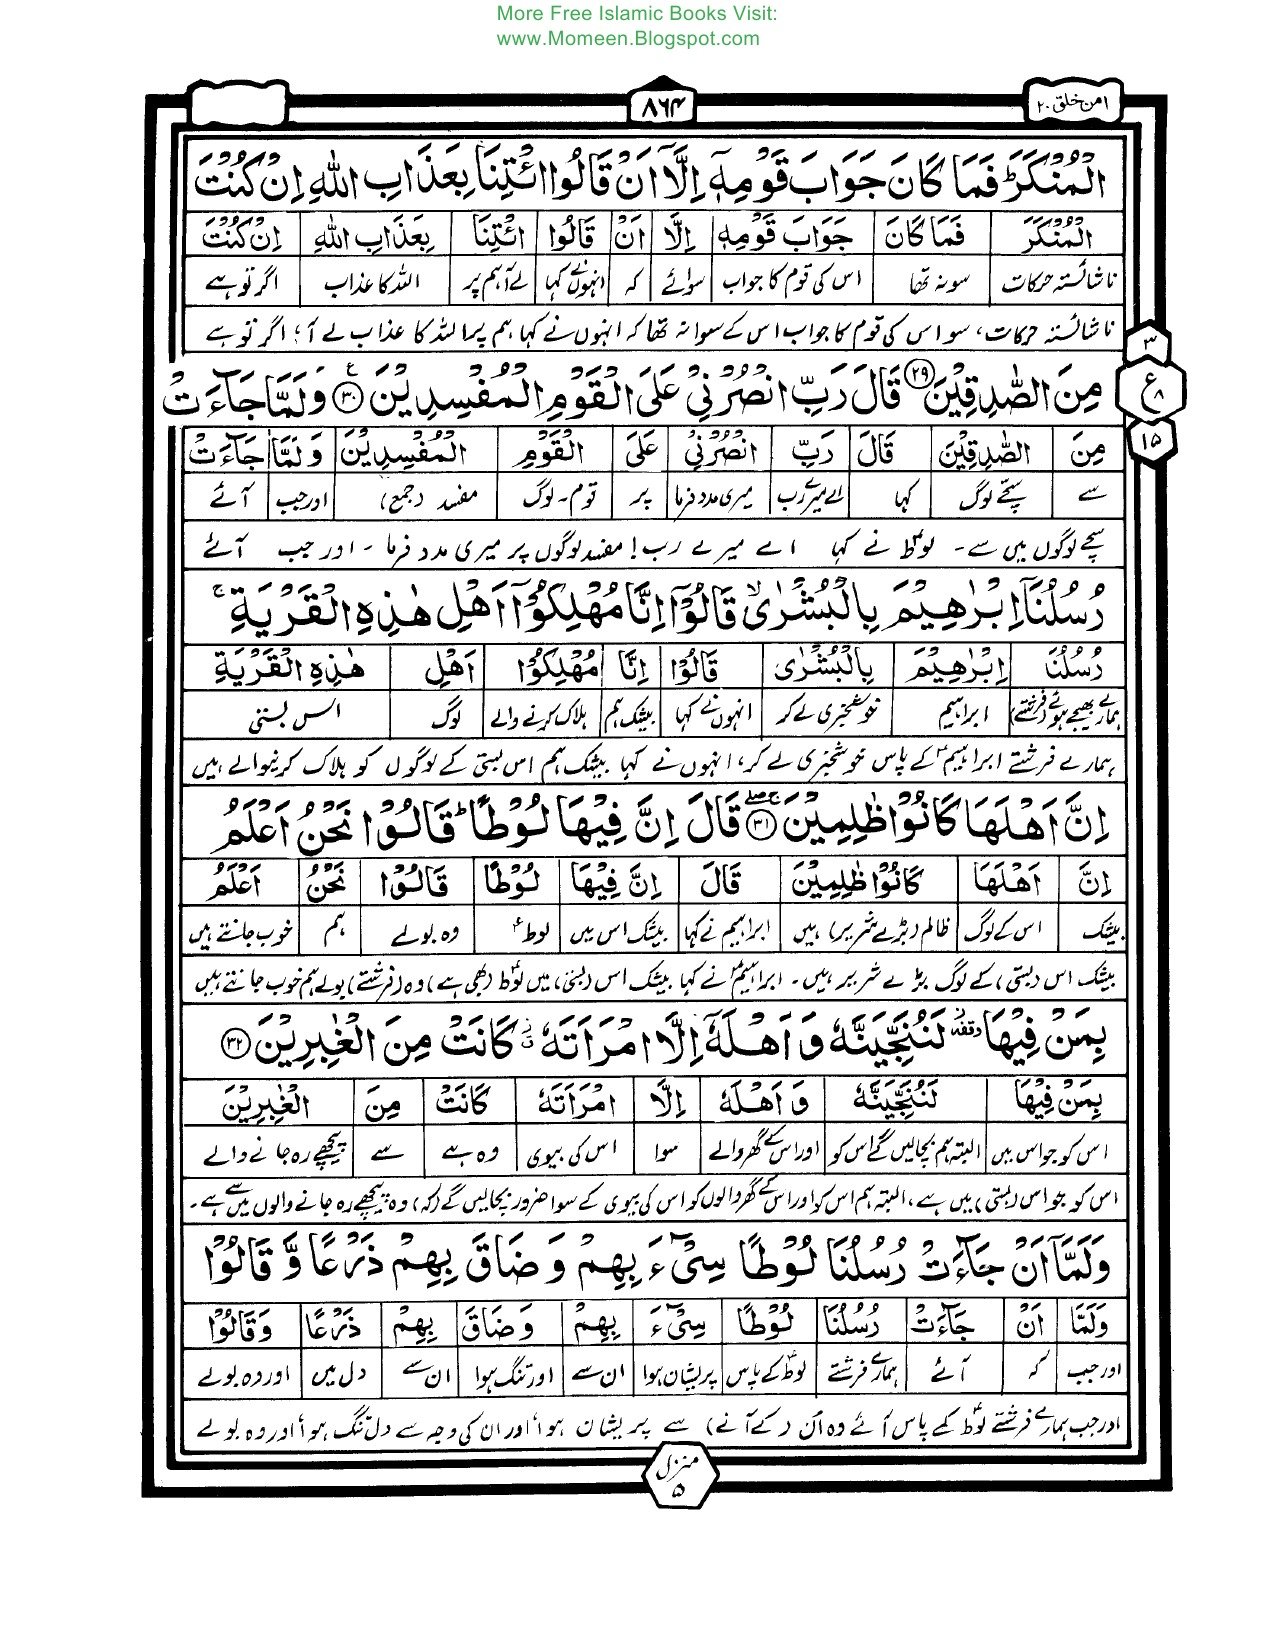 More Free Islamic Books Visit:
www.Momeen.Blogspot.com
امن خلق ۲۰
۸۶۴
الْمُنْكَرَ ؕ فَمَا كَانَ جَوَابَ قَوْمِهٖۤ اِلَّاۤ اَنْ قَالُوا ائْتِنَا بِعَذَابِ اللّٰهِ اِنْ كُنْتَ
الْمُنْكَرَ فَمَا كَانَ جَوَابَ قَوْمِهٖۤ اِلَّا اَنْ قَالُوا ائْتِنَا بِعَذَابِ اللّٰهِ اِنْ كُنْتَ
ناشائستہ حرکات سو نہ تھا اس کی قوم کا جواب سوائے کہ انہوں نے کہا لے آ ہم پر اللہ کا عذاب اگر تو ہے
ناشائستہ حرکات، سو اس کی قوم کا جواب اس کے سوا نہ تھا کہ انہوں نے کہا ہم پر اللہ کا عذاب لے آ؛ اگر تو ہے
۳
ع
۸
۱۵
مِنَ الصّٰدِقِيْنَ ﴿۲۹﴾ قَالَ رَبِّ انْصُرْنِيْ عَلَى الْقَوْمِ الْمُفْسِدِيْنَ ﴿۳۰﴾ ع وَلَمَّا جَآءَتْ
مِنَ الصّٰدِقِيْنَ قَالَ رَبِّ انْصُرْنِيْ عَلَى الْقَوْمِ الْمُفْسِدِيْنَ وَلَمَّا جَآءَتْ
سے سچے لوگ کہا اے میرے رب میری مدد فرما پر قوم۔ لوگ مفسد (جمع) اور جب آئے
سچے لوگوں میں سے۔ لوطؑ نے کہا اے میرے رب! مفسد لوگوں پر میری مدد فرما۔ اور جب آئے
رُسُلُنَاۤ اِبْرٰهِيْمَ بِالْبُشْرٰى ۙ قَالُوْۤا اِنَّا مُهْلِكُوْۤا اَهْلِ هٰذِهِ الْقَرْيَةِ ۚ
رُسُلُنَا اِبْرٰهِيْمَ بِالْبُشْرٰى قَالُوْۤا اِنَّا مُهْلِكُوْۤا اَهْلِ هٰذِهِ الْقَرْيَةِ
ہمارے بھیجے ہوئے (فرشتے) ابراہیم خوشخبری لے کر انہوں نے کہا بیشک ہم ہلاک کرنے والے لوگ اس بستی
ہمارے فرشتے ابراہیمؑ کے پاس خوشخبری لے کر، انہوں نے کہا بیشک ہم اس بستی کے لوگوں کو ہلاک کرنیوالے ہیں
اِنَّ اَهْلَهَا كَانُوْا ظٰلِمِيْنَ ﴿۳۱﴾ قَالَ اِنَّ فِيْهَا لُوْطًا ؕ قَالُوْا نَحْنُ اَعْلَمُ
اِنَّ اَهْلَهَا كَانُوْا ظٰلِمِيْنَ قَالَ اِنَّ فِيْهَا لُوْطًا قَالُوْا نَحْنُ اَعْلَمُ
بیشک اس کے لوگ ظالم (بڑے شریر) ہیں ابراہیم نے کہا بیشک اس میں لوطؑ وہ بولے ہم خوب جانتے ہیں
بیشک اس (بستی) کے لوگ بڑے شریر ہیں۔ ابراہیمؑ نے کہا بیشک اس (بستی) میں لوطؑ (بھی ہے) وہ (فرشتے) بولے ہم خوب جانتے ہیں
بِمَنْ فِيْهَا وقفة لَنُنَجِّيَنَّهٗ وَاَهْلَهٗۤ اِلَّا امْرَاَتَهٗ ؗ كَانَتْ مِنَ الْغٰبِرِيْنَ ﴿۳۲﴾
بِمَنْ فِيْهَا لَنُنَجِّيَنَّهٗ وَاَهْلَهٗ اِلَّا امْرَاَتَهٗ كَانَتْ مِنَ الْغٰبِرِيْنَ
اس کو جو اس میں البتہ ہم بچالیں گے اس کو اور اس کے گھر والے سوا اس کی بیوی وہ ہے سے پیچھے رہ جانے والے
اس کو جو اس (بستی) میں ہے، البتہ ہم اس کو اور اس کے گھر والوں کو اس کی بیوی کے سوا ضرور بچالیں گے (کہ) وہ پیچھے رہ جانے والوں میں سے ہے۔
وَلَمَّاۤ اَنْ جَآءَتْ رُسُلُنَا لُوْطًا سِيْٓءَ بِهِمْ وَضَاقَ بِهِمْ ذَرْعًا وَّ قَالُوْا
وَلَمَّا اَنْ جَآءَتْ رُسُلُنَا لُوْطًا سِيْٓءَ بِهِمْ وَضَاقَ بِهِمْ ذَرْعًا وَقَالُوْا
اور جب کہ آئے ہمارے فرشتے لوطؑ کے پاس پریشان ہوا ان سے اور تنگ ہوا ان سے دل میں اور وہ بولے
اور جب ہمارے فرشتے لوطؑ کے پاس آئے وہ ان (کے آنے) سے پریشان ہوا، اور ان کی وجہ سے دل تنگ ہوا اور وہ بولے
منزل
۵